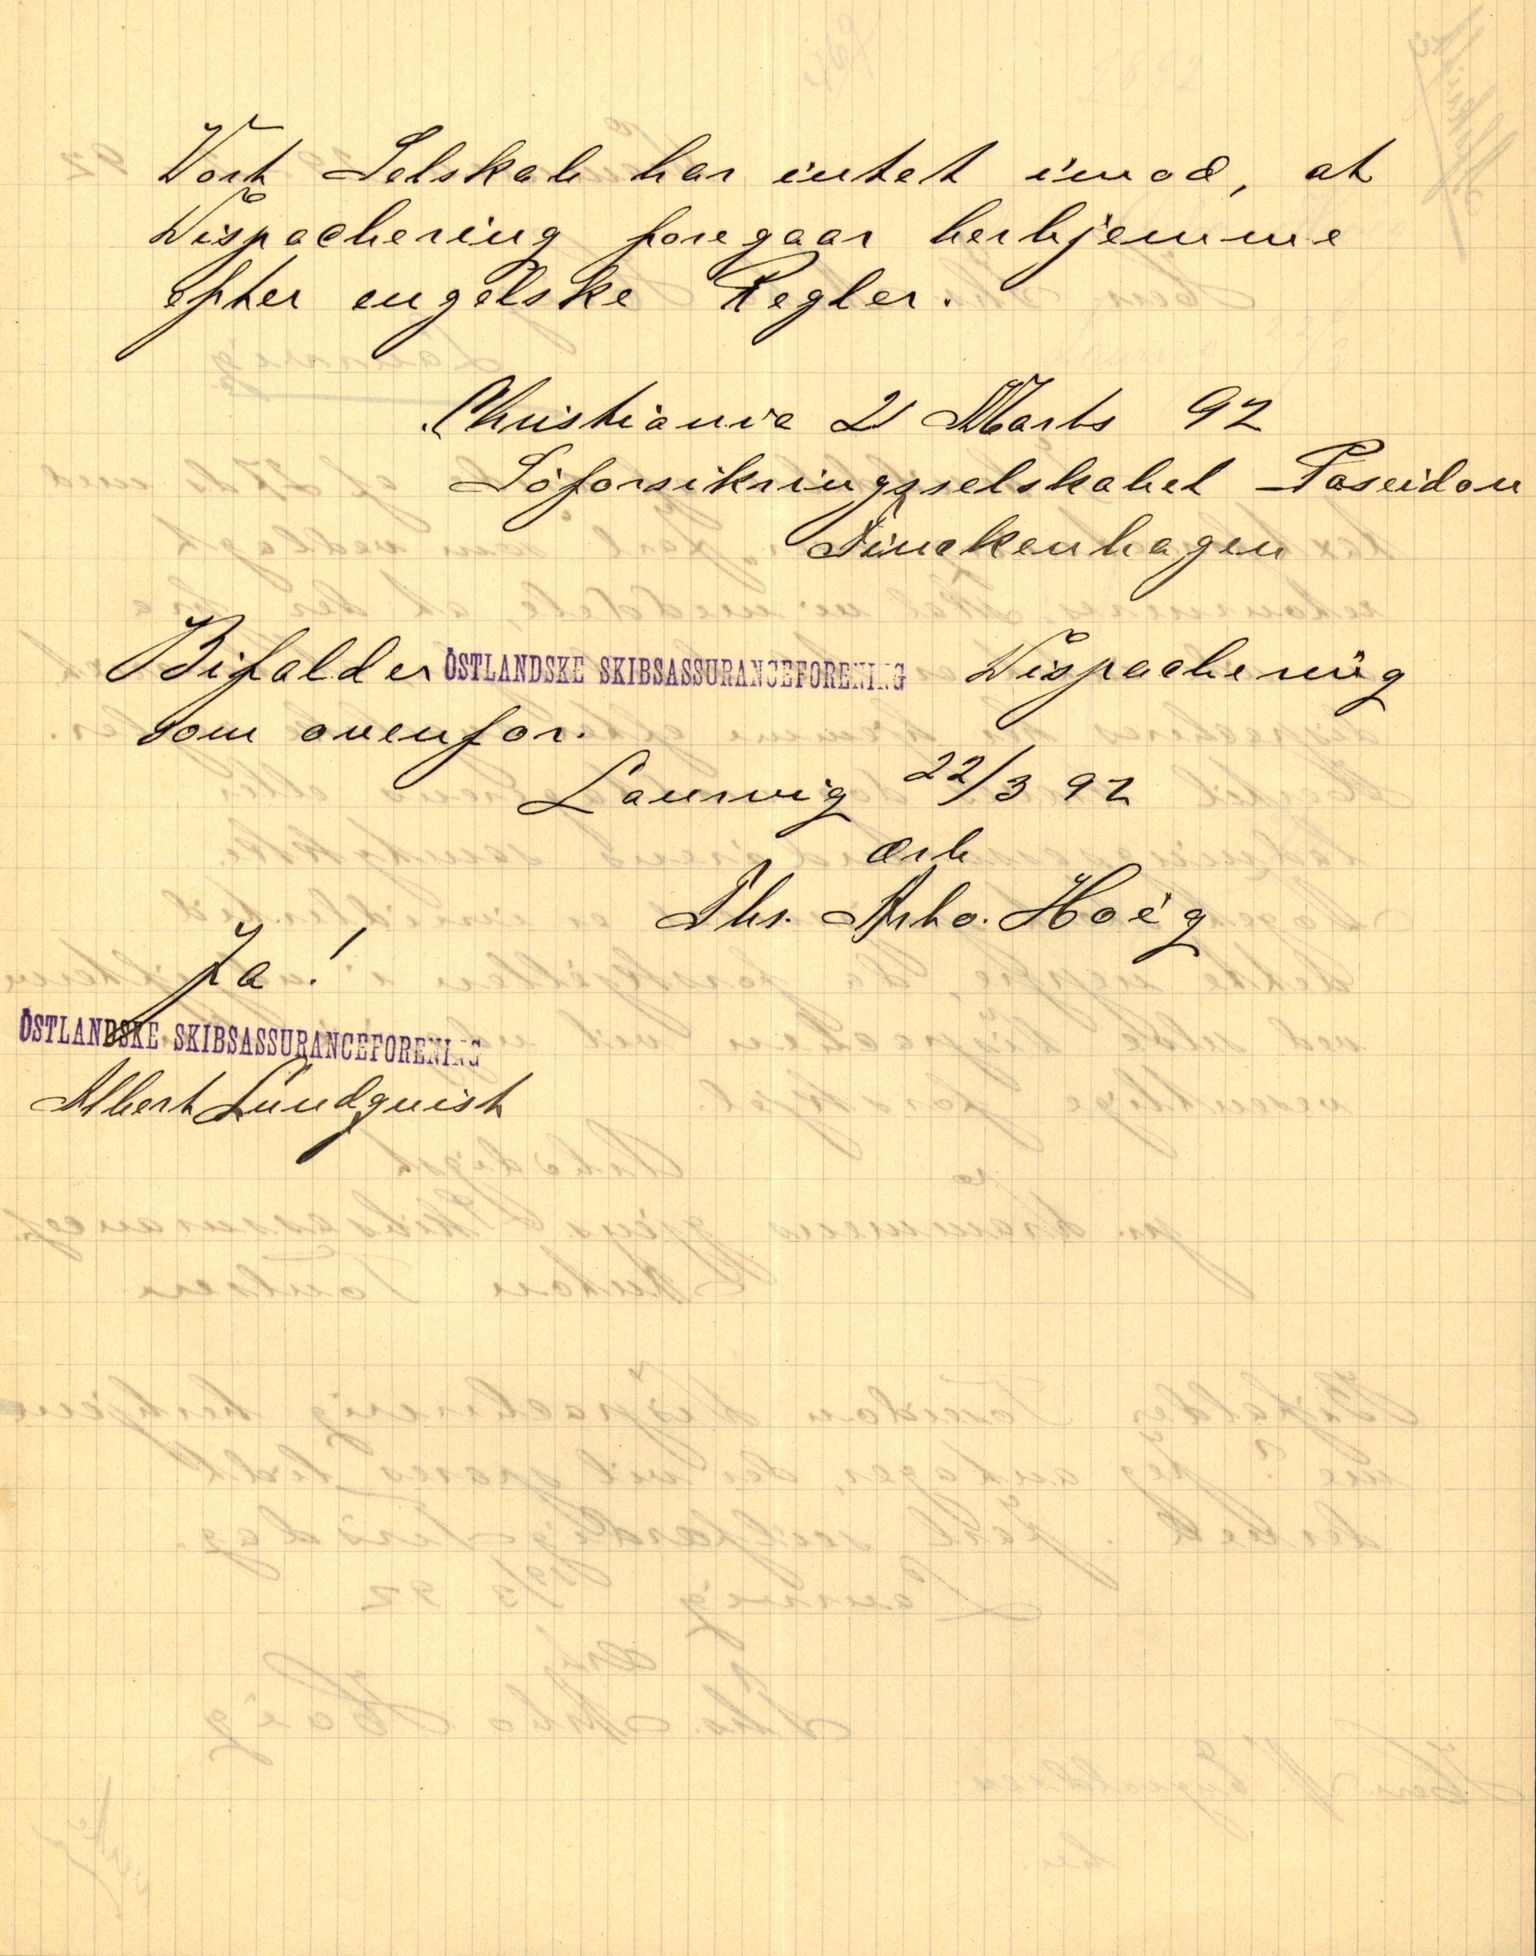 Vort Selskab har intet imod, at
Dispachering foregaar herhjemme
efter engelske Regler.
Christiania 21 Marts 92
Söforsikringsselskabet Poseidon
Finckenhagen
Bifalder ÖSTLANDSKE SKIBSASSURANCEFORENING Dispachering
som ovenfor.
Laurvig 22/3 92
Ærb
Ths. Arbo. Höeg
Ja!
ÖSTLANDSKE SKIBSASSURANCEFORENING
Albert Lundquist